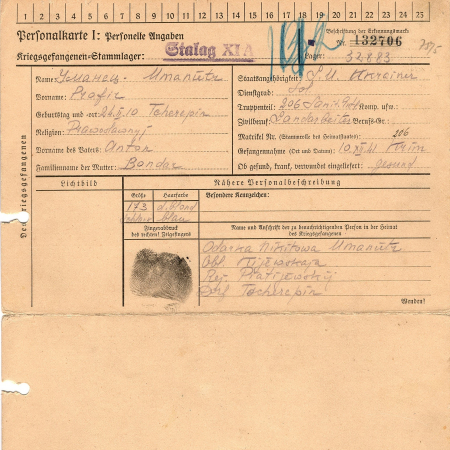 1 2 3 4 5 6 7 8 9 10 11 12 13 14 15 16 17 18 19 20 21 22 23 24 25
Personalkarte I: Personelle Angaben
Beschriftung der Erkennungsmarke
Nr. 132706
Kriegsgefangenen-Stammlager: Stalag XI A
Lager:
Des Kriegsgefangenen
Name: Уманець - Umanetz
Vorname:
Geburtstag und -ort
Religion:
Vorname des Vaters: Anton
Familienname der Mutter: Bondar
Staatsangehörigkeit: S.U. Ukrainer
Dienstgrad: Sol
Truppenteil: 206 Komp. usw.:
Zivilberuf: Landarbeiter Berufs-Gr.:
Matrikel Nr. (Stammrolle des Heimatstaates): 206
Gefangennahme (Ort und Datum): Krim
Ob gesund, krank, verwundet eingeliefert: gesund
Lichtbild
Nähere Personalbeschreibung
Größe Haarfarbe Besondere Kennzeichen:
173 d. blond
blau
Fingerabdruck
des rechten! Zeigefingers!
Name und Anschrift der zu benachrichtigenden Person in der Heimat
des Kriegsgefangenen
Odarka Nikitowa Umanetz
Obl. Kijewskaja
Dorf Tscherepin
Wenden!